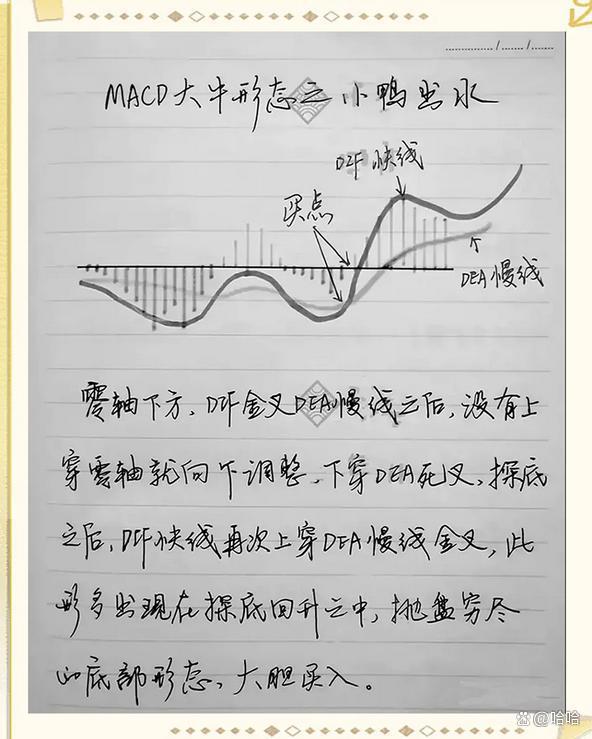 ............... / ....... / .......
MACD大牛形态之小鸭出水
DIF 快线
买点
DEA慢线
零轴下方，DIF金叉DEA慢线之后，没有上
穿零轴就向下调整，下穿DEA死叉，探底
之后，DIF快线再次上穿DEA慢线金叉，此
形多出现在探底回升之中，抛盘穷尽
的底部形态，大胆买入。
哈哈